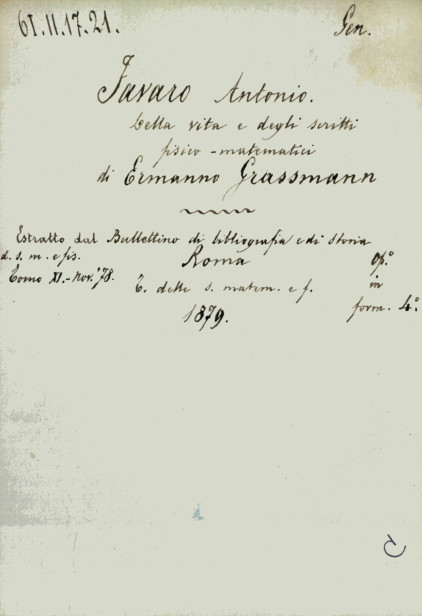 61.II.17.21. Gen.
Favaro Antonio.
Della vita e degli scritti
fisico-matematici
di Ermanno Grassmann
Estratto dal Bullettino di bibliografia e di Storia
d. s. m. e fis. Roma op.º
Tomo XI.-Nov. '78. T. delle s. matem. e f. in
1879. form. 4.º